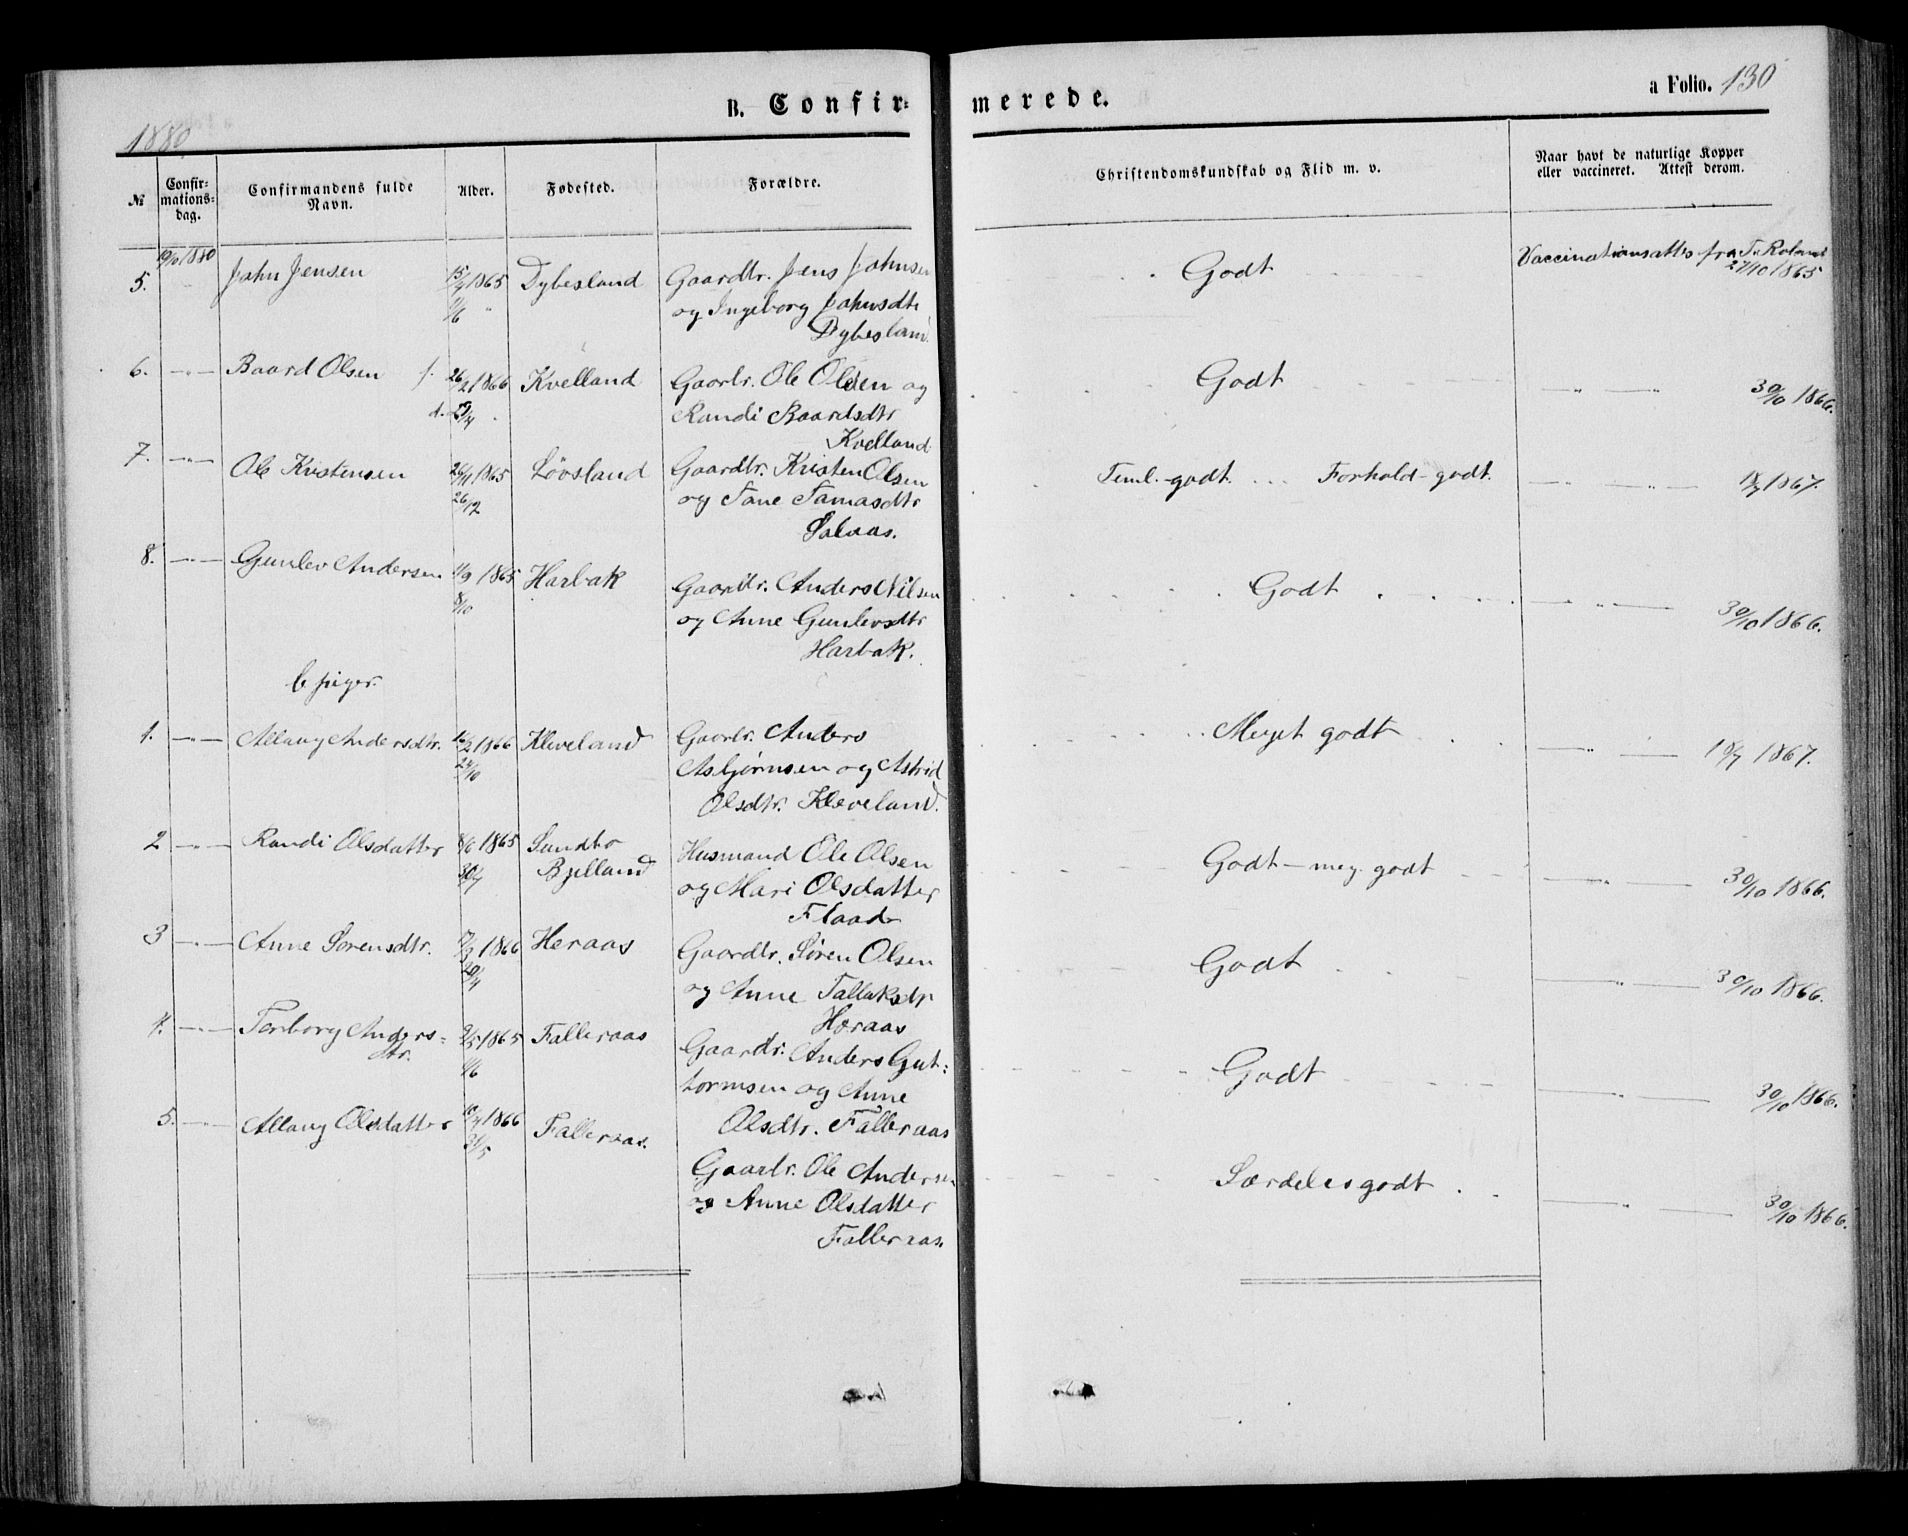 B. Confir-
merede.
a Folio. 130
1880
№
Confir-
mations-
dag.
Confirmandens fulde
Navn.
Alder.
Fødested.
Forældre.
Christendomskundskab og Flid m. v.
Naar havt de naturlige Kopper
eller vaccineret. Attest derom.
5. 10/10 1880 Jahn Jensen 15/4 1865 Dybesland Gaardbr. Jens Jahnsen Godt Vaccinationsattes fra
1/6 og Ingeborg Jahnsdtr 27/10 1865
Dybesland
6. —"— Baard Olsen f. 26/2 1866 Kvelland Gaarbr. Ole Olsen og Godt —"— —"— 30/10 1866.
d. 29/4 Randi Baardsdtr
Kvelland
7. —"— Ole Kristensen 26/11 1865 Løvsland Gaardbr. Kristen Olsen Teml. godt. Forhold - godt. —"— —"— 18/7 1867.
26/12 og Tone Tamasdtr
8. —"— Gunlev Andersen 11/9 1865 Harbak Gaardbr. Anders Nilsen Godt —"— —"— 30/10 1866.
8/10 og Anne Gunlevsdtr
Harbak.
b piger.
1. —"— Allaug Andersdtr. 16/2 1866 Kleveland Gaarbr. Anders Meget godt —"— —"— 18/7 1867.
24/10 Asbjørnsen og Astrid
Olsdtr. Kleveland.
2 —"— Randi Olsdatter 8/6 1865 Sundbø Husmand Ole Olsen Godt - meg. godt —"— 30/10 1866.
30/7 Bjelland og Mari Olsdatter
Flaad
3 —"— Anne Sørensdtr. 17/3 1866 Heraas Gaardbr. Søren Olsen Godt —"— 30/10 1866.
20/4 og Anne Tallaksdtr
Heraas
4. —"— Torborg Anders- 9/5 1865 Falleraas Gaardbr. Anders Gut- Godt —"— 30/10 1866.
dtr. 1/6 tormsen og Anne
Olsdtr. Falleraas
5. —"— Allaug Olsdatter 10/4 1866 Falleraas. Gaarbr. Ole Andersen Særdeles godt —"— 30/10 1866.
21/5 og Anne Olsdatter
Falleraas